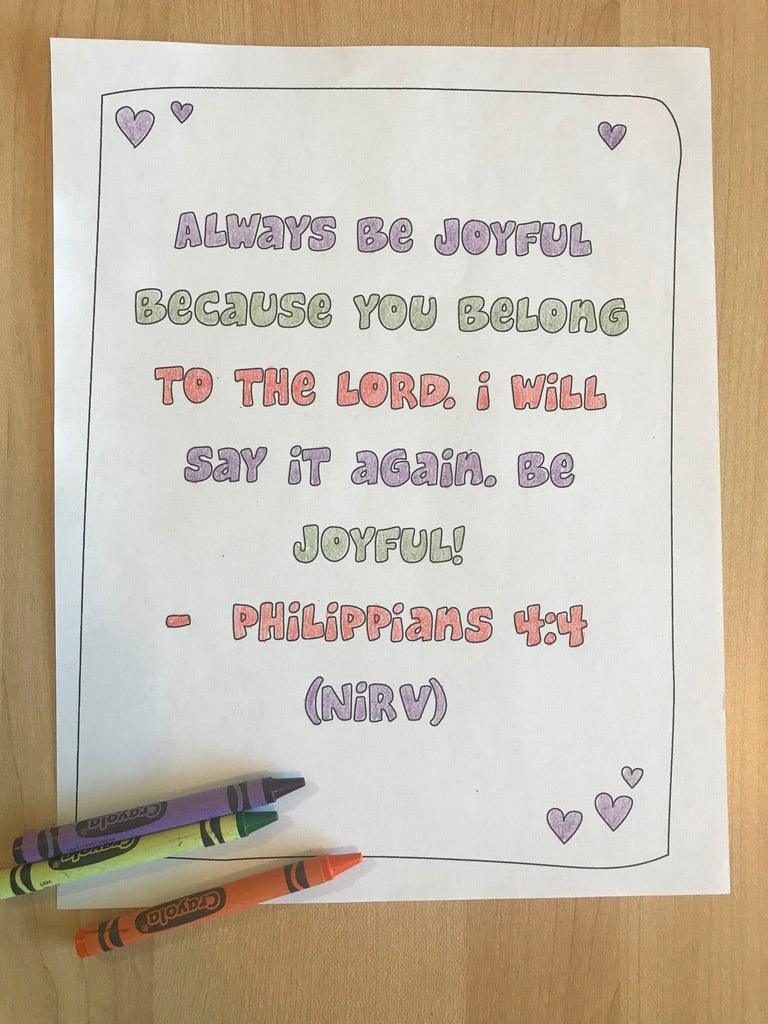 ALWAYS Be JOYFUL
BeCause YOU BeLONG
TO THe LORD. i WiLL
SaY iT aGain. Be
JOYFUL!
- PHiLiPPians 4:4
(NiRV)
Crayola
Crayola
Crayola